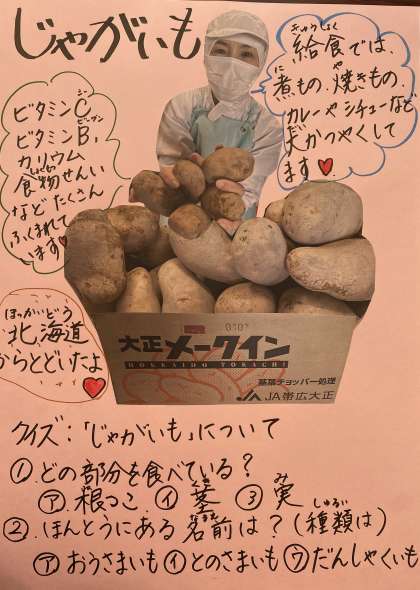 じゃがいも
きゅうしょく
給食では、
に や
煮もの、焼きもの、
カレーやシチューなど
大かつやくして
ます♥
シー
ビタミンC
ビーワン
ビタミンB₁
カリウム
しょくもつ
食物せんい
など たくさん
ふくまれて
います♥
ほっかいどう
北海道
からとどいたよ
♥
0107
大正 メークイン
HOKKAIDO TOKACHI
萎凋チョッパー処理
JA帯広大正
クイズ:「じゃがいも」について
①.どの部分を食べている?
くき み
㋐.根っこ ㋑ 茎 ③ 実
なまえ しゅるい
②.ほんとうにある 名前は?(種類は)
㋐ おうさまいも ㋑とのさまいも ㋒だんしゃくいも